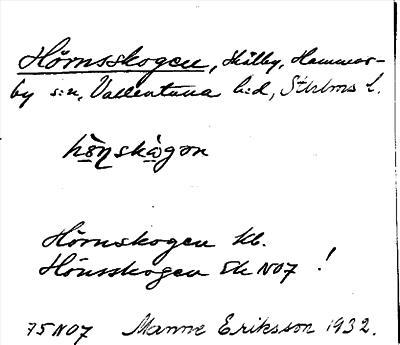 Hörnsskogen, Skålby, Hammar-
by s:n, Vallentuna h:d, Sthlms l.
hö̀ṇskògən
Hörnskogen Kb.
Hönsskogen Ek NO7 !
75NO7 Manne Eriksson 1932.